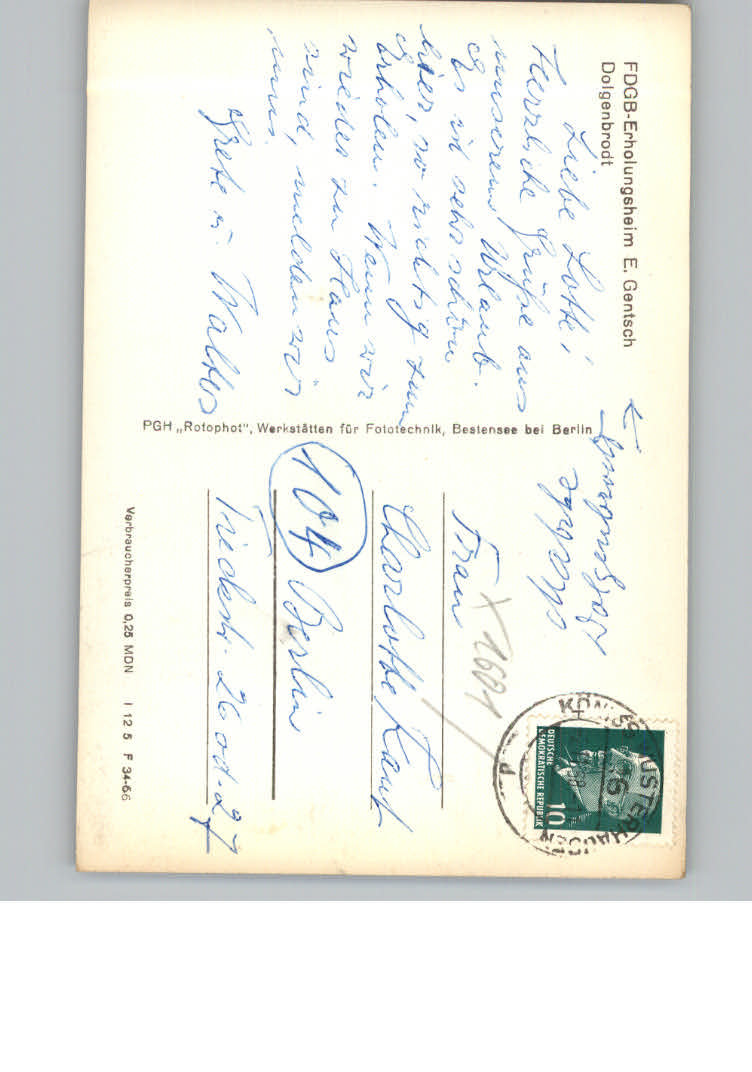 FDGB-Erholungsheim E. Gentsch
Dolgenbrodt
Liebe Lotte!
Herzliche Grüße aus
unserem Urlaub.
Es ist sehr schön
hier, so richtig zum
Erholen. Wenn wir
wieder zu Haus
sind, melden wir
uns.
Grete u. Walter
PGH „Rotophot", Werkstätten für Fototechnik, Bestensee bei Berlin
X 1601
Frau
Charlotte Kant
104 Berlin
Tieckstr. 26 od. 27
KÖNIGS WUSTERHAUSEN
DEUTSCHE
DEMOKRATISCHE REPUBLIK
10
Verbraucherpreis 0,25 MDN I 12 5 F 34-66